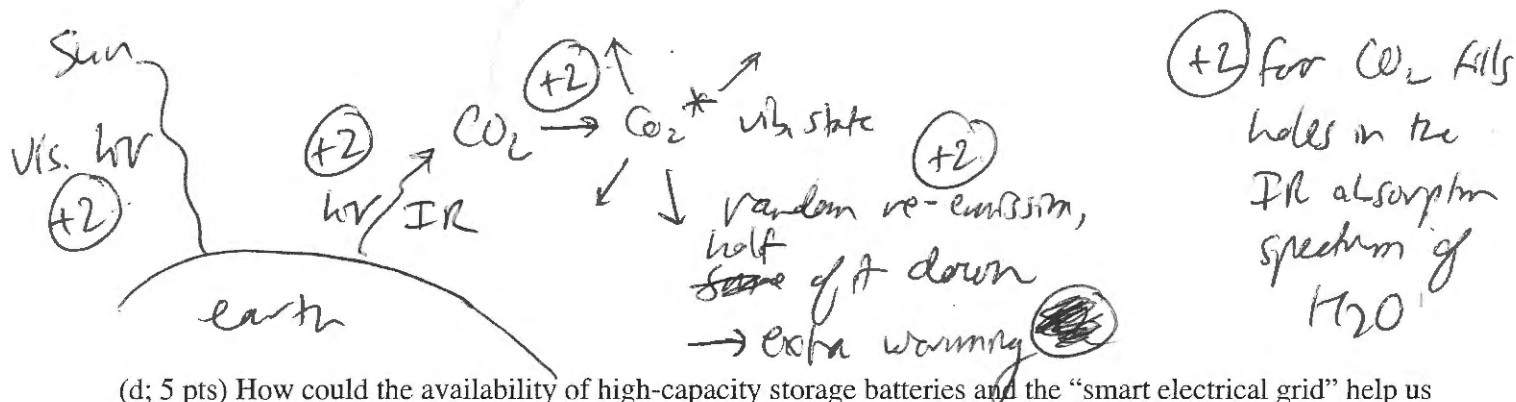 Sun
vis. hν
+2
+2
hν IR
CO2 → CO2* vib state
+2
+2
random re-emission,
half
some of it down
→ extra warming
earth
+2 for CO2 fills
holes in the
IR absorption
spectrum of
H2O
(d; 5 pts) How could the availability of high-capacity storage batteries and the “smart electrical grid” help us